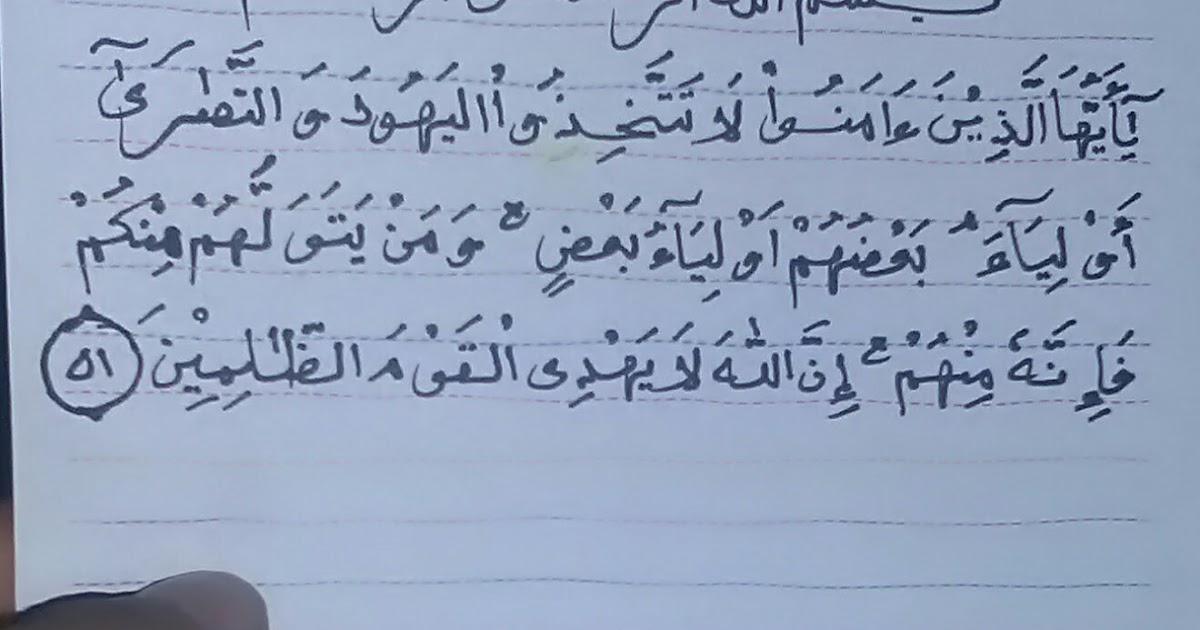 يَٰٓأَيُّهَا الَّذِيْنَ ءَامَنُوْا لَا تَتَّخِذُوْا الْيَهُودَ وَ النَّصَٰرَىٰٓ
أَوْلِيَآءَ ۘ بَعْضُهُمْ أَوْلِيَآءُ بَعْضٍ ۚ وَمَنْ يَتَوَلَّهُمْ مِنْكُمْ
فَإِنَّهُ مِنْهُمْ ۚ إِنَّ اللّٰهَ لَا يَهْدِى الْقَوْمَ الظَّٰلِمِيْنَ ٥١